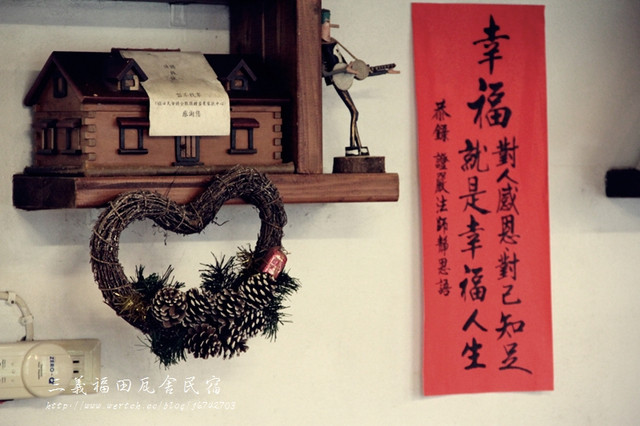 幸福
對人感恩對己知足
就是幸福人生
恭錄 證嚴法師靜思語
感謝您
三義福田瓦舍民宿